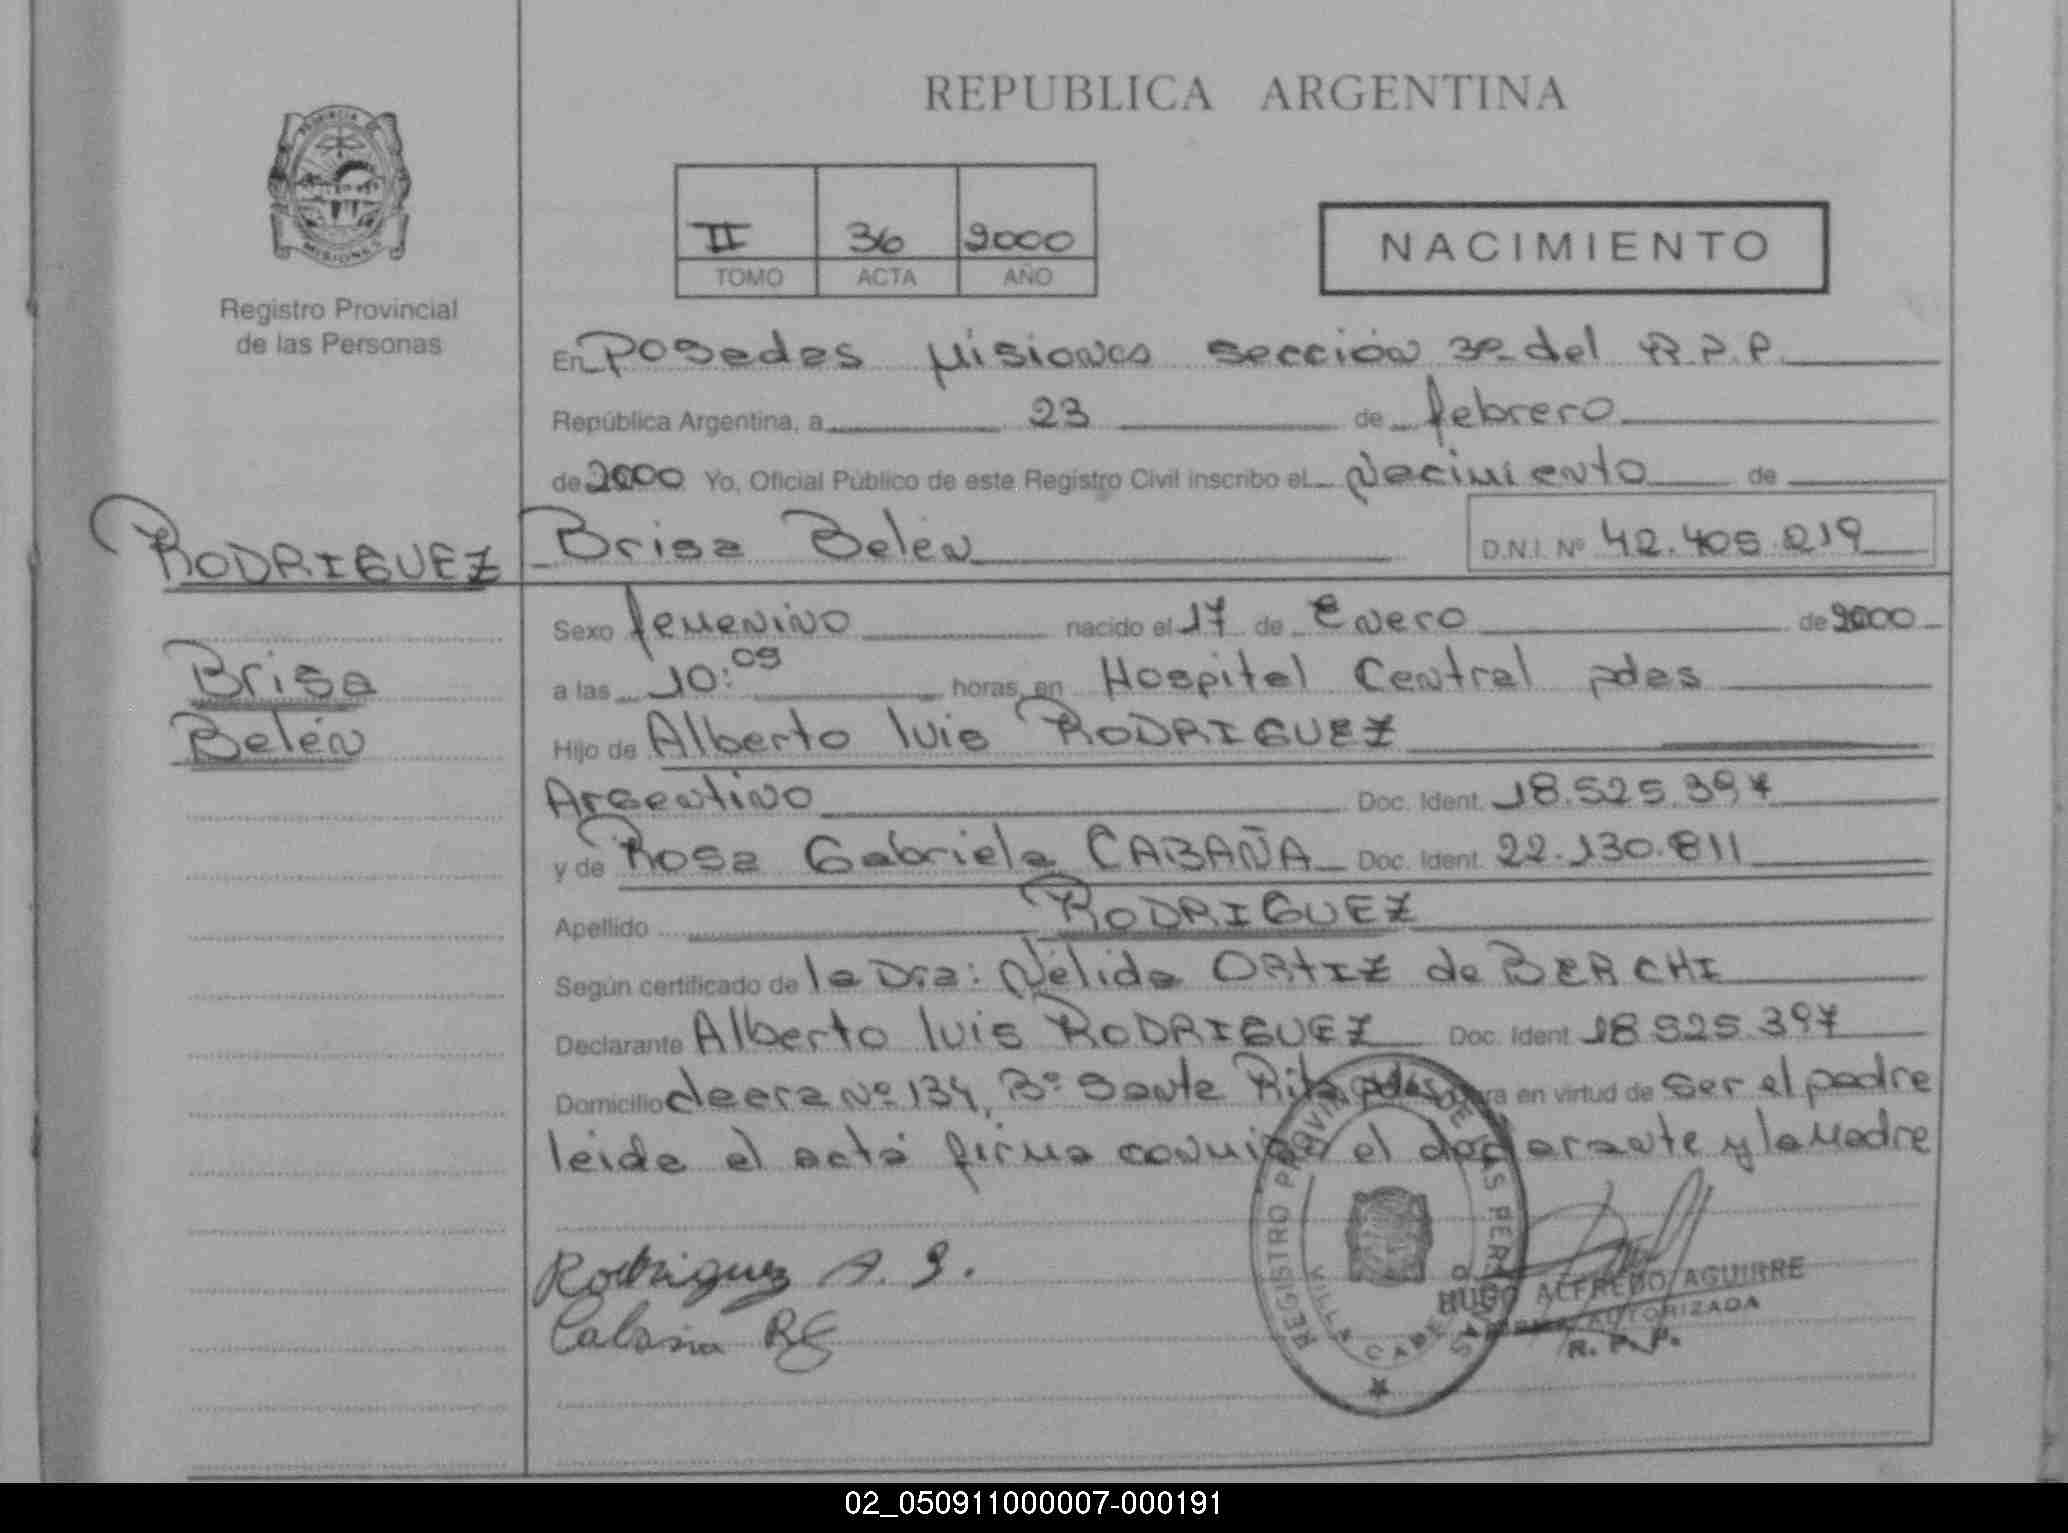 REPUBLICA ARGENTINA
PROVINCIA DE
MISIONES
Registro Provincial
de las Personas
II 36 2000
TOMO ACTA AÑO
NACIMIENTO
En Posadas Misiones sección 3ª del R.P.P.
República Argentina, a 23 de febrero
de 2000 Yo, Oficial Público de este Registro Civil inscribo el Nacimiento de
RODRIGUEZ Brisa Belén D.N.I. Nº 42.405.219
Brisa
Belén
Sexo femenino nacido el 17 de Enero de 2000
a las 10:09 horas en Hospital Central pdas
Hijo de Alberto luis RODRIGUEZ
Argentino Doc. Ident. 18.525.397
y de Rosa Gabriela CABAÑA Doc. Ident. 22.130.811
Apellido RODRIGUEZ
Según certificado de la Dra: Nélida ORTIZ de BERCHI
Declarante Alberto luis RODRIGUEZ Doc. Ident 18.525.397
Domicilio Nº 134, Bº Santa Rita pdas en virtud de ser el padre
leida el acta firma conmigo el declarante y la Madre
Rodriguez A.
Cabaña RG
REGISTRO PROVINCIAL DE LAS PERSONAS
VILLA CABELLO
HUGO ALFREDO AGUIRRE
AUTORIZADA
R. P. P.
02_050911000007-000191